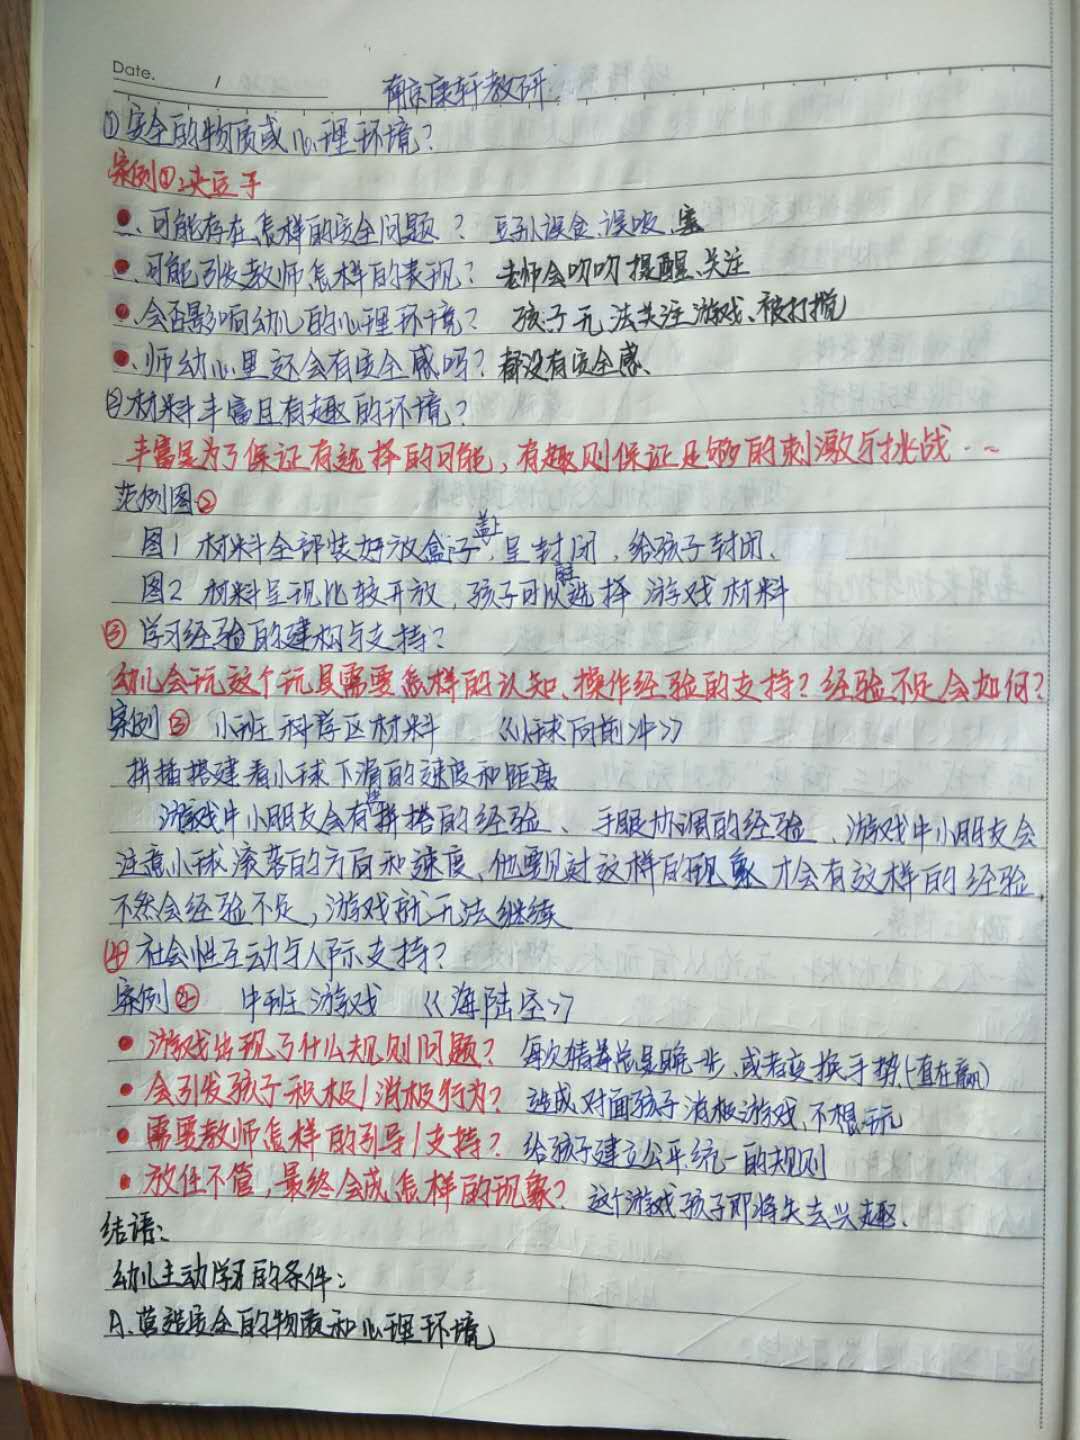 Date.
南京康轩教研
①安全的物质或心理环境？
案例①:夹豆子
●、可能存在怎样的安全问题？ 豆子误食、误吸、塞
●、可能引发教师怎样的表现？ 老师会叨叨提醒、关注
●、会否影响幼儿的心理环境？ 孩子无法关注游戏、被打搅
●、师幼心里还会有安全感吗？都没有安全感、
②材料丰富且有趣的环境？
丰富是为了保证有选择的可能，有趣则保证足够的刺激与挑战…～
范例图②
图1 材料全部装好放盒子盖上，呈封闭，给孩子封闭、
图2 材料呈现比较开放，孩子可以选择 游戏材料
③ 学习经验的建构与支持？
幼儿会玩这个玩具需要怎样的认知、操作经验的支持？经验不足会如何？
案例③ 小班科学区材料 《小球向前冲》
拼插搭建看小球下滑的速度和距离
游戏中小朋友会有拼搭的经验、手眼协调的经验、游戏中小朋友会
注意小球滚落的方向和速度、他要见过这样的现象 才会有这样的经验，
不然会经验不足，游戏就无法继续
④社会性互动与人际支持？
案例④ 中班游戏 《海陆空》
●游戏出现了什么规则问题？ 每次猜拳总是晚一步、或者变换手势(一直在赢)
●会引发孩子积极/消极行为？ 造成对面孩子消极游戏、不想玩
●需要教师怎样的引导/支持？ 给孩子建立公平统一的规则
●放任不管，最终会成怎样的现象？ 这个游戏孩子即将失去兴趣、
结语：
幼儿主动学习的条件：
A、营造安全的物质和心理环境